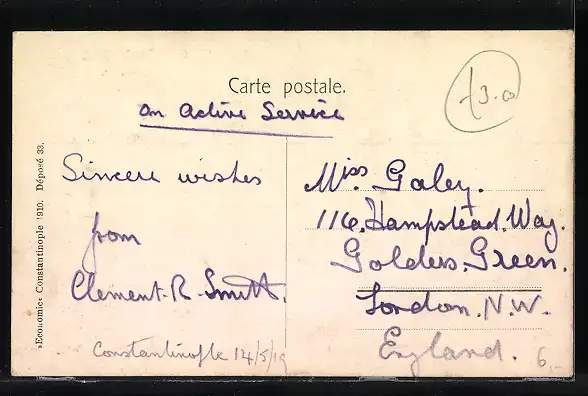 Carte postale.
On Active Service
Sincere wishes
from
Clement. R. Smith.
Constantinople 14/5/19
Miss. Galey.
116, Hampstead. Way.
Golders. Green.
London. N. W.
England.
»Economie« Constantinople 1910. Déposé 33.
6,-